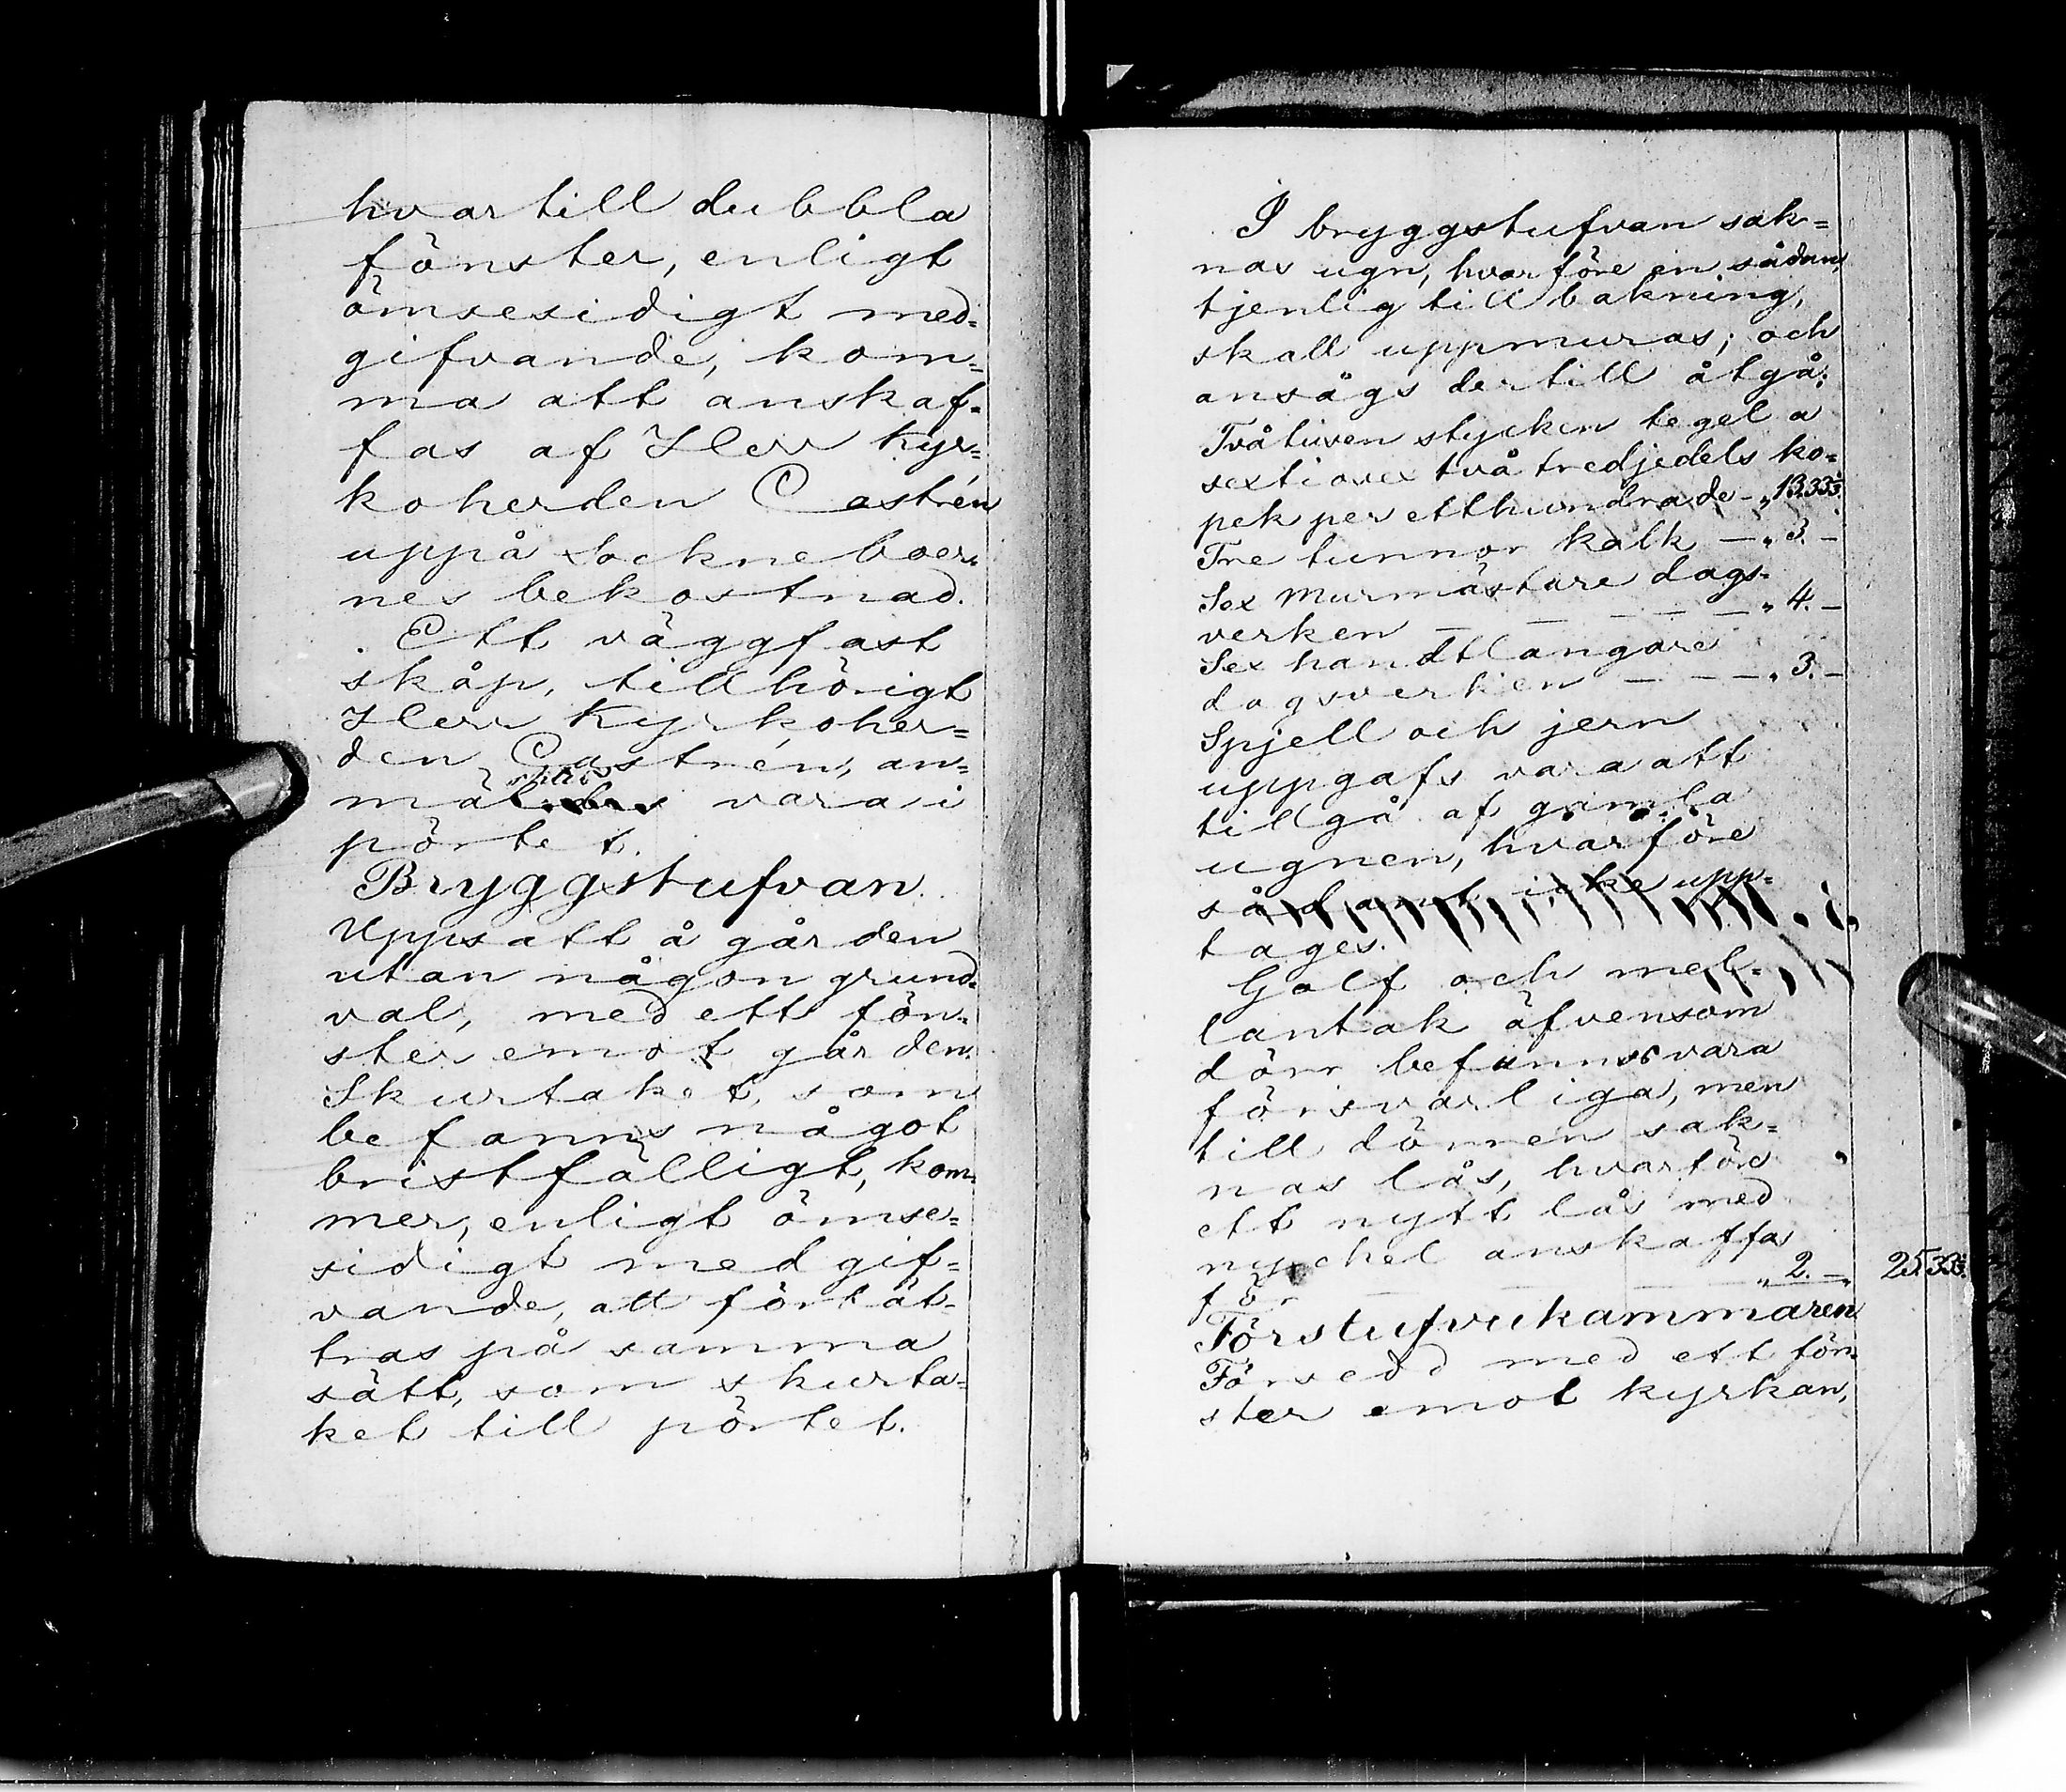 hvartill dubbla
fönster, enligt
ömsesidigt med=
gifvande, kom=
ma att anskaf=
fas af Herr Kyr=
koherden Castrén
uppå Sockneboer=
nes bekostnad.
Ett väggfast
skåp, tillhörigt
Herr Kyrkoher=
den Castrén, an=
mäl vara i
pörtet.
Bryggstufvan.
Uppsatt å gården
utan någon grund=
val, med ett fön=
ster emot gården.
Skurtaket, som
befanns något
bristfälligt, kom=
mer, enligt ömse=
sidigt medgif=
vande, att förbät=
tras på samma
sätt, som skurta=
ket till pörtet.
I bryggstufvan sak=
nas ugn, hvarföre en sådan,
tjenlig till bakning,
skall uppmuras; och
ansågs dertill åtgå:
Tvåtusen stycken tegel a
sextiosex två tredjedels ko=
pek per etthundrade - „ 13.33⅓.
Tre tunnor kalk — „ 3. —
Sex Murmästare dags=
verken — — — — „ 4. —
Sex handtlangare
dagsverken — — — „ 3. —
Spjell och jern
uppgafs vara att
tillgå af gamla
ugnen, hvarföre
sådant icke upp=
tages.
Golf och mel=
lantak äfvensom
dörr befunnos vara
försvarliga, men
till dörren sak=
nas lås, hvarföre
ett nytt lås med
nyckel anskaffas
för — — — „ 2. — „ 25.33⅓.
Förstufvukammaren
Försedd med ett fön=
ster emot kyrkan,